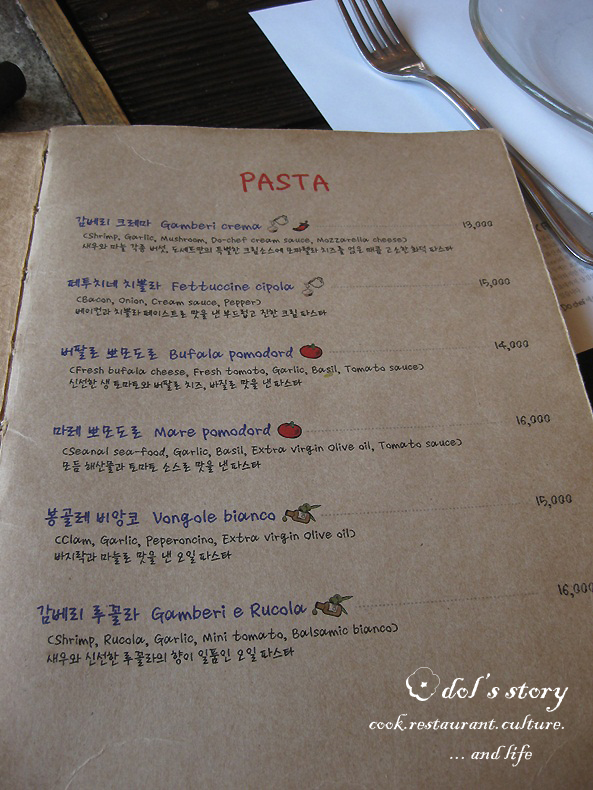 PASTA
감베리 크레마 Gamberi crema 13,000
(Shrimp, Garlic, Mushroom, Do-chef cream sauce, Mozzarella cheese)
새우와 마늘 각종 버섯, 도세트만의 특별한 크림소스에 모짜렐라 치즈를 얹은 매콤 고소한 화덕 파스타
페투치네 치뽈라 Fettuccine cipola 15,000
(Bacon, Onion, Cream sauce, Pepper)
베이컨과 치뽈라 페이스트로 맛을 낸 부드럽고 진한 크림 파스타
버팔로 뽀모도로 Bufala pomodord 14,000
(Fresh bufala cheese, Fresh tomato, Garlic, Basil, Tomato sauce)
신선한 생 토마토와 버팔로 치즈, 바질로 맛을 낸 파스타
마레 뽀모도로 Mare pomodord 16,000
(Seanal sea-food, Garlic, Basil, Extra virgin Olive oil, Tomato sauce)
모듬 해산물과 토마토 소스로 맛을 낸 파스타
봉골레 비앙코 Vongole bianco 15,000
(Clam, Garlic, Peperoncino, Extra virgin Olive oil)
바지락과 마늘로 맛을 낸 오일 파스타
감베리 루꼴라 Gamberi e Rucola 16,000
(Shrimp, Rucola, Garlic, Mini tomato, Balsamic bianco)
새우와 신선한 루꼴라의 향이 일품인 오일 파스타
dol's story
cook.restaurant.culture.
... and life